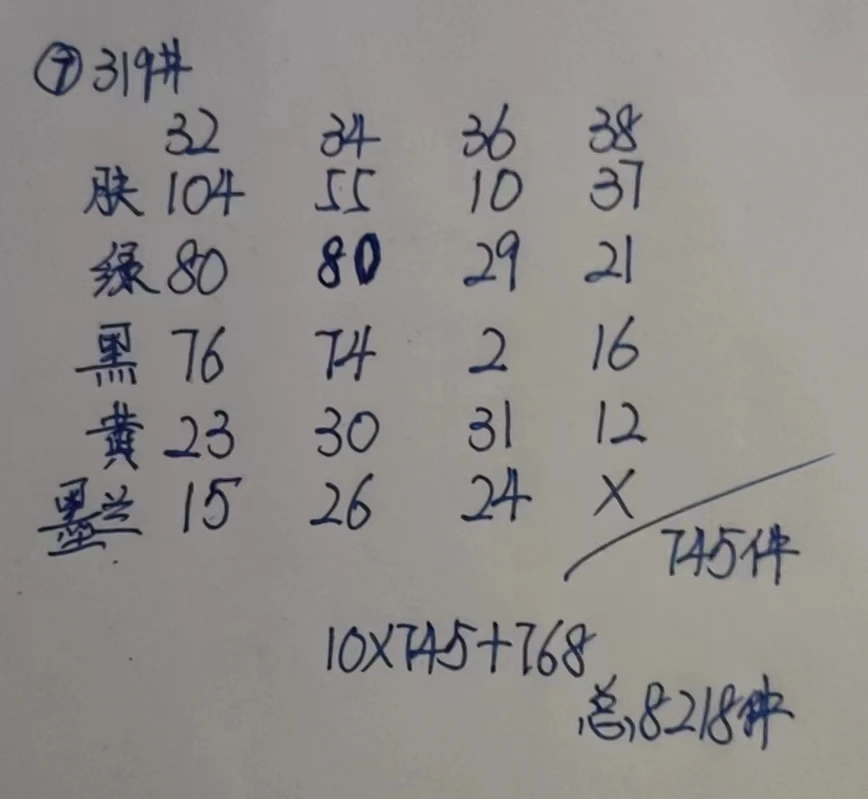 ⑦ 319#
32 34 36 38
肤 104 55 10 37
绿 80 80 29 21
黑 76 74 2 16
黄 23 30 31 12
墨兰 15 26 24 X
745件
10X745+768
总8218件